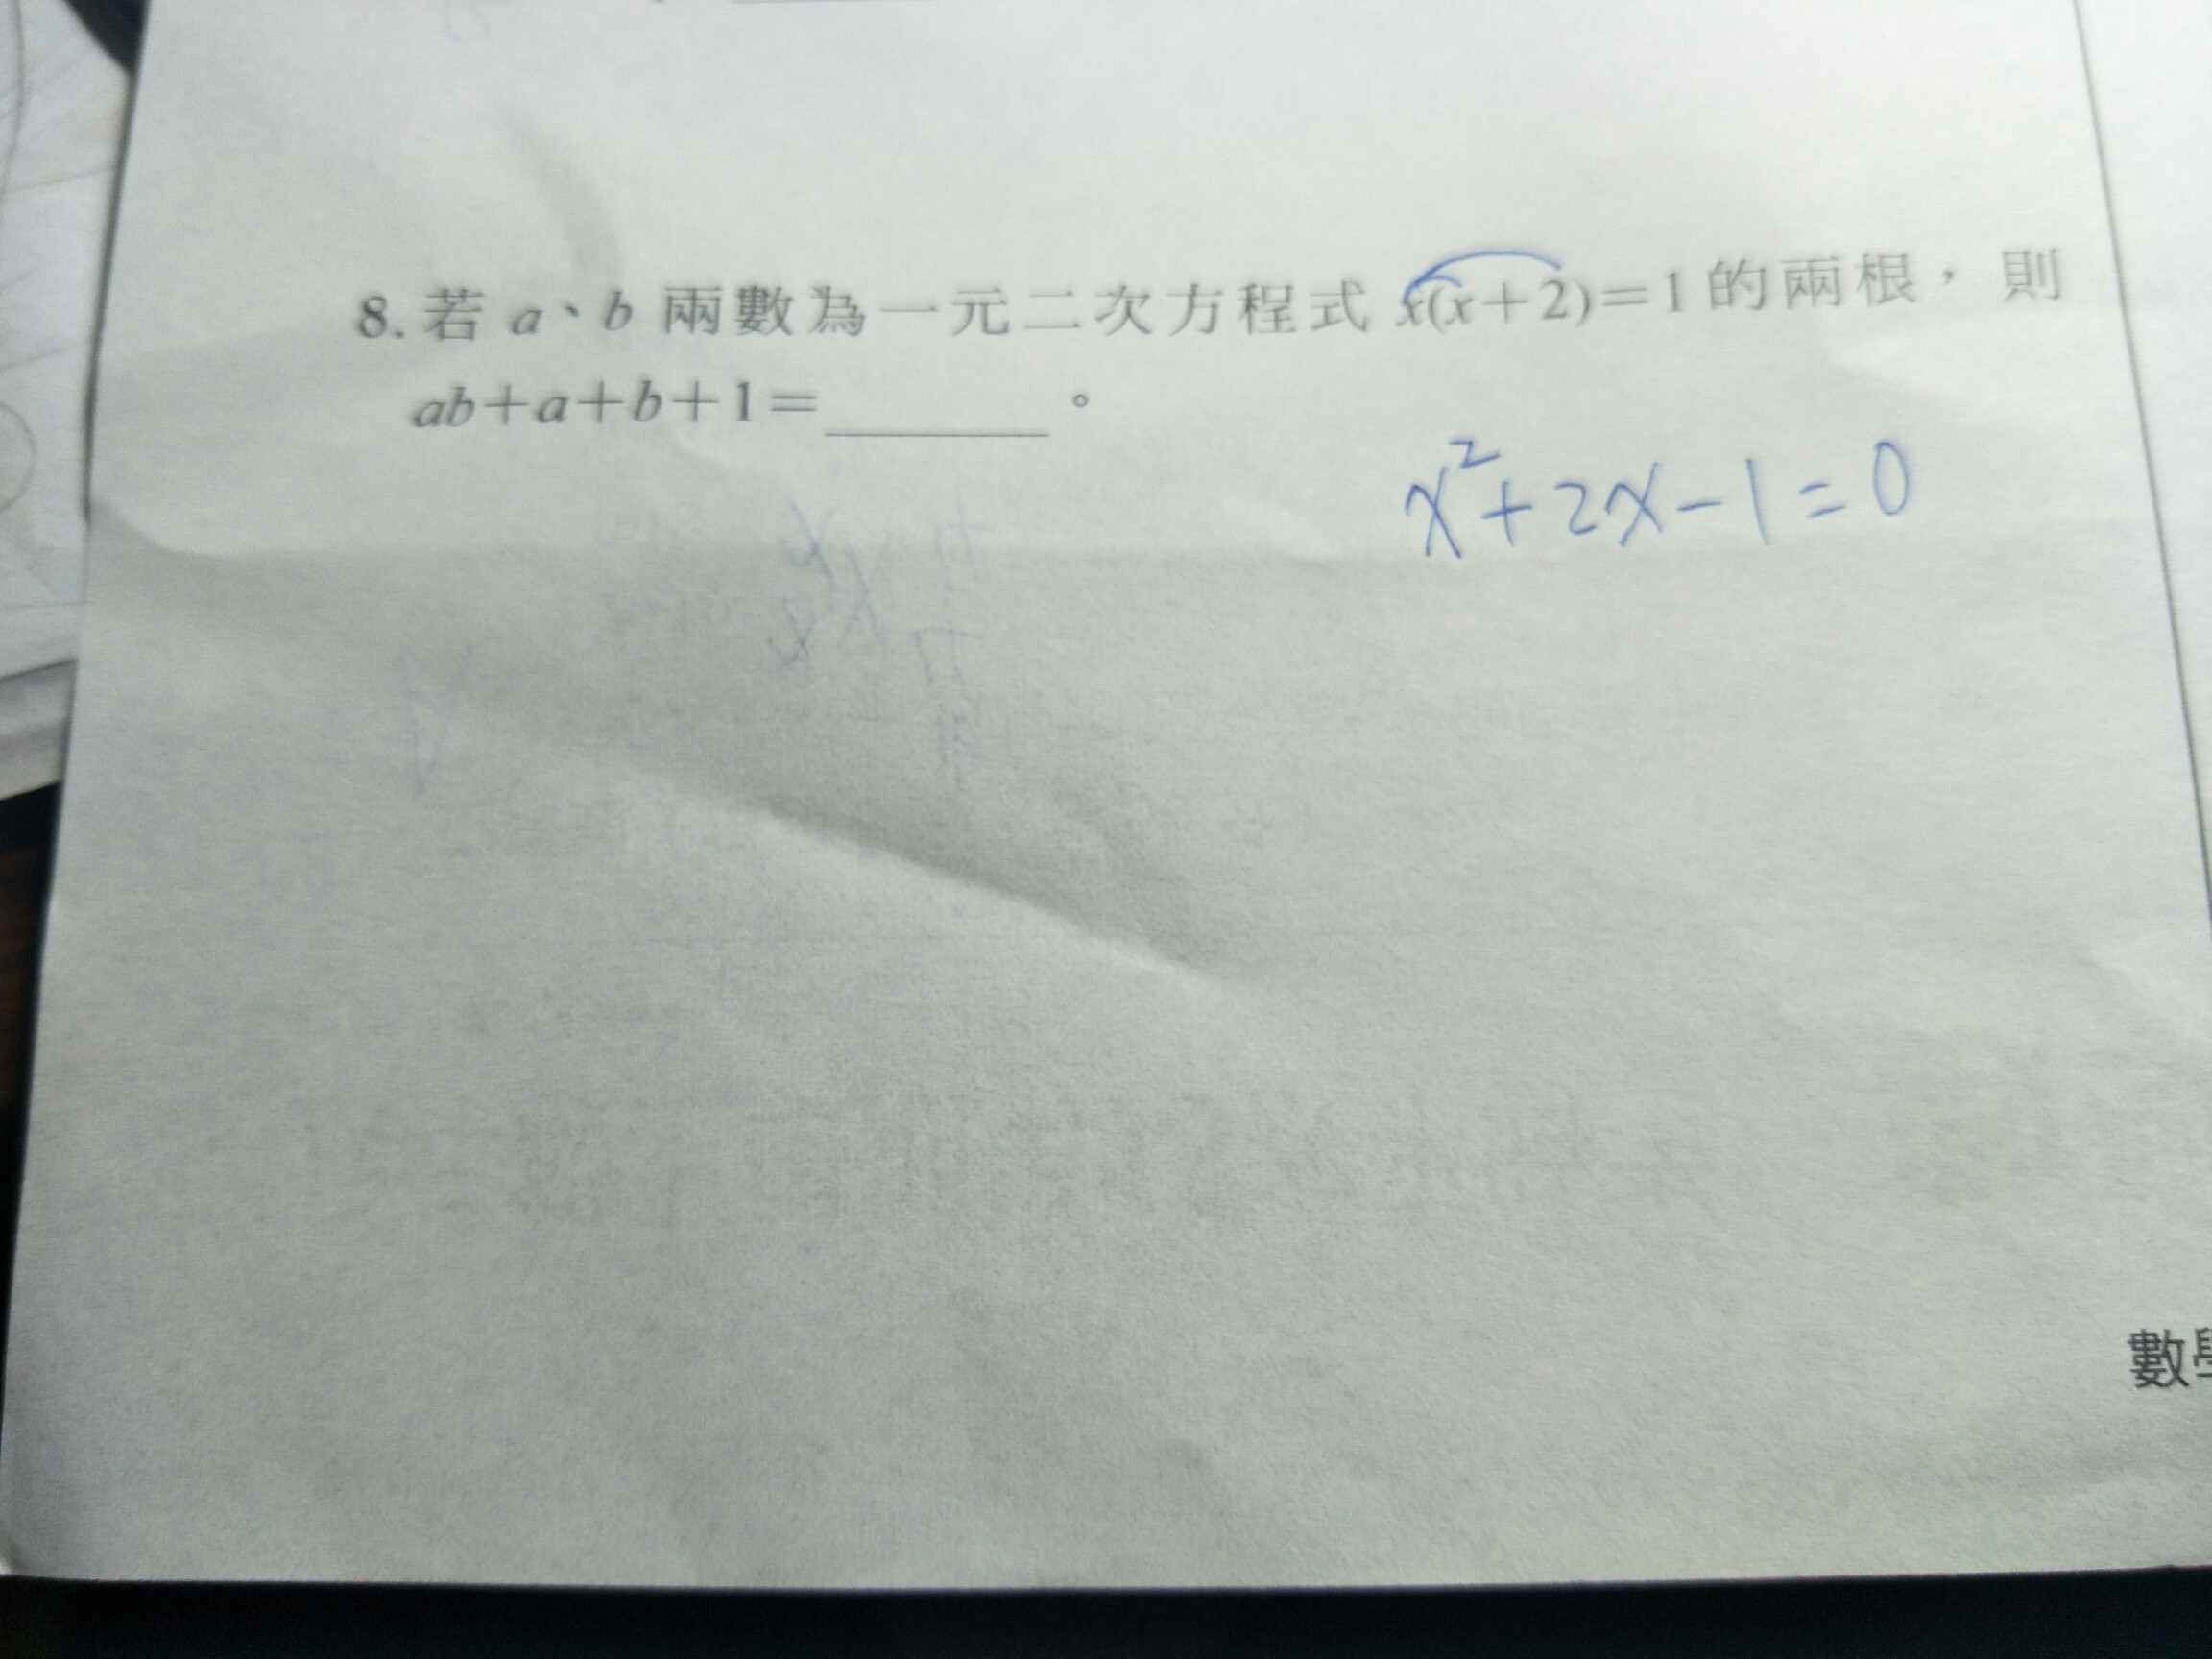 8. 若 a、b 兩數為一元二次方程式 x(x+2)=1 的兩根，則
ab+a+b+1=______。
x²+2x-1=0
數